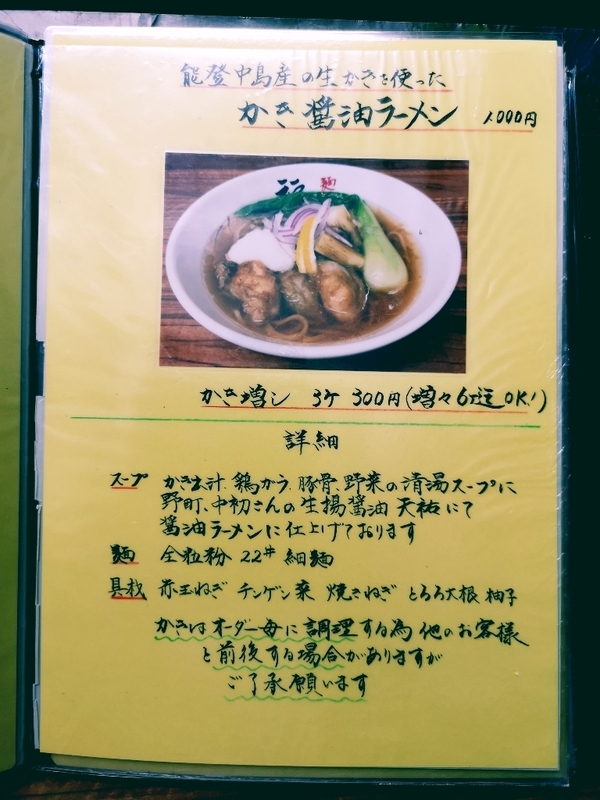 能登中島産の生かきを使った
かき醤油ラーメン 1.000円
麺
かき増シ 3ケ 300円(増々6ケ迄OK!)
詳細
スープ かき出汁、鶏ガラ、豚骨、野菜の清湯スープに
野町、中初さんの生揚醤油 天祐にて
醤油ラーメンに仕上げております
麺 全粒粉 22# 細麺
具材 赤玉ねぎ チンゲン菜 焼きねぎ とろろ大根 柚子
かきはオーダー毎に調理する為他のお客様
と前後する場合がありますが
ご了承願います